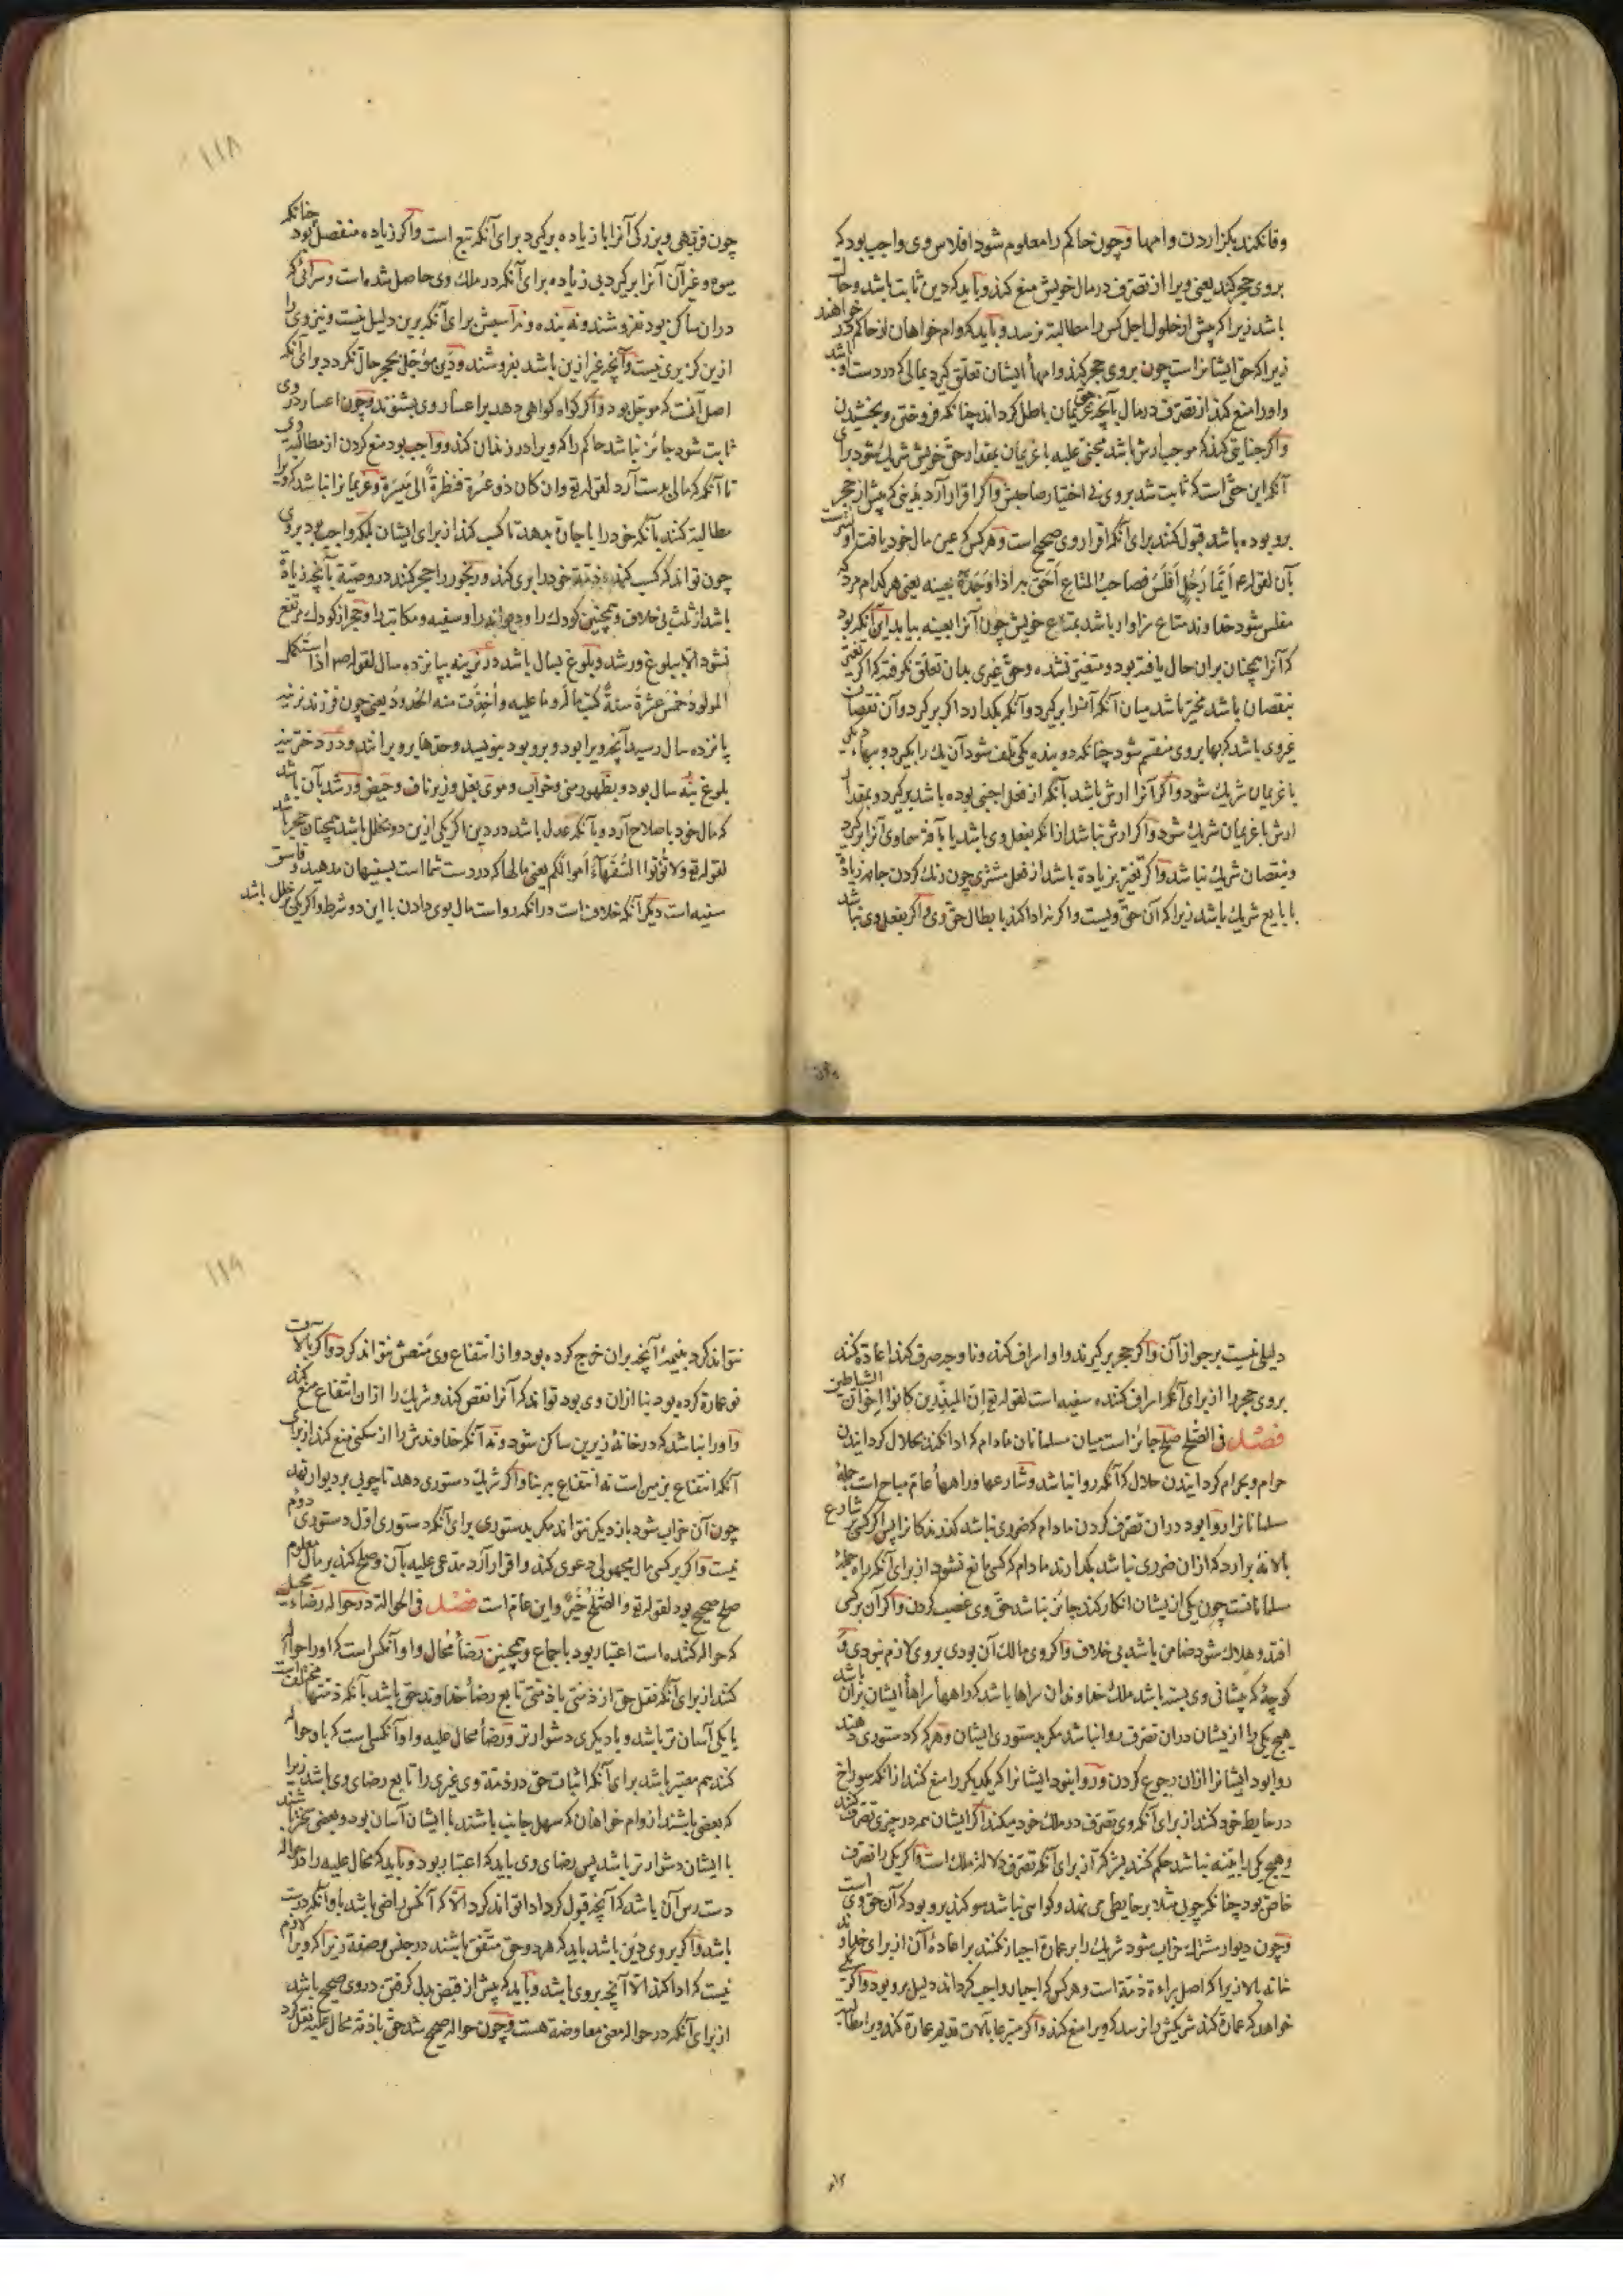 وفا نکند بکزاردن وامها وچون حاکم را معلوم شود افلاس وی واجب بود که
بروی حجر کند یعنی ویرا از تصرف در مال خویش منع کند وباید که دین ثابت باشد وحال
باشد زیرا که پیش از حلول اجل کس را مطالبة نرسد وباید که وام خواهان از حاکم در خواهند
زیرا که حق ایشانراست چون بروی حجر کند وامهأ ایشان تعلق کیرد بمالی که در دست وی باشد
واورا منع کند از تصرف در مال بآنچه حق غریمان باطل کرداند چنانکه فروختن وبخشیدن
واکر جنایتی کند که موجب ارش باشد مجنی علیه با غریمان بمقدار حق خویش شریک شود برای
آنکه این حقی است که ثابت شد بروی بی اختیار صاحبش واکر اقرار آرد بدینی که پیش از حجر
برو بوده باشد قبول کنند برای آنکه اقرار وی صحیح است وهر کس که عین مال خود یافت اولیترست
بآن لقوله ع ایما رجل افلس فصاحب المتاع احق به اذا وجده بعینه یعنی هر کدام مرد که
مفلس شود خداوند متاع سزاوار باشد بمتاع خویش چون آنرا بعینه بیابد برای آنکه بود
که آنرا همچنان بران حال یافته بود ومتغیر نشده وحق غیری بدان تعلق نکرفته که اکر تغیر
بنقصان باشد مخیر باشد میان آنکه آنرا برکیرد وآنکه بکذارد اکر برکیرد وآن نقصان
غروی باشد که بها بروی منقسم شود چنانکه دو بنده یکی تلف شود آن یک را بکیرد وببهاء دیکری
با غریمان شریک شود واکر آنرا ارش باشد بآنکه از فعل اجنبی بوده باشد برکیرد وبمقدار
ارش با غریمان شریک شود واکر ارش نباشد از آنکه بفعل وی باشد یا بآفة سماوی آنرا برکیرد
وبنقصان شریک نباشد واکر تغیر بزیادة باشد از فعل مشتری چون رنک کردن جامه زیادة
با بایع شریک باشد زیرا که آن حق ویست واکر نه ادا کند بابطال حق وی واکر بفعل وی نباشد
۱۱۸
چون فربهی وبزرکی آنرا با زیاده برکیرد برای آنکه تبع است واکر زیاده منفصل بود چنانکه
میوه وغیر آن آنرا برکیرد بی زیاده برای آنکه در ملک وی حاصل شده است وسرائی که
دران ساکن بود نفروشند ونه بنده ونه اسبش برای آنکه برین دلیل نیست ونیز وی را
ازین کزیری نیست وآنچه غیر ازین باشد بفروشند ودین مؤجل بحجر حال نکردد برای آنکه
اصل آنست که مؤجل بود واکر کواه کواهی دهد بر اعسار وی بشنوند وچون اعسار در وی
ثابت شود جائز نباشد حاکم را که ویرا در زندان کند وواجب بود منع کردن از مطالبة وی
تا آنکه که مالی بدست آرد لقوله تع وان کان ذو عسرة فنظرة الی میسرة وغریمانرا نباشد که ویرا
مطالبة کنند بآنکه خود را باجارة بدهد تا کسب کند از برای ایشان بلکه واجب بود بروی
چون تواند که کسب کند که ذمة خود را بری کند ورنجور را حجر کنند در وصیة بآنچه زیادة
باشد از ثلث بی خلاف وهمچنین کودک را ودیوانه را وسفیه ومکاتب را وحجر از کودک مرتفع
نشود الا ببلوغ ورشد وبلوغ بسال باشد در نرینه بپانزده سال لقوله صم اذا استکمل
المولود خمس عشرة سنة کتب ما له وما علیه واخذت منه الحدود یعنی چون فرزند نرینه
پانزده سال رسید آنچه ویرا بود وبرو بود بنویسند وحدها برو برانند ودر دخترینه
بلوغ بنه سال بود وبظهور منی وخواب وموی بغل وزیر ناف وحیض ورشد بآن باشد
که مال خود باصلاح آرد وبآنکه عدل باشد در دین اکر یکی ازین دو مختل باشد همچنان حجر باشد
لقوله تع ولا تؤتوا السفهآء اموالکم یعنی مالها که در دست شما است بسفیهان مدهید وفاسق
سفیه است دیکر آنکه خلاف است درانکه روا است مال بوی دادن با این دو شرط واکر یکی مختل باشد
دلیلی نیست بر جواز آن واکر حجر برکیرند واو اسراف کند ونا وجه صرف کند اعادة کنند
بروی حجر را از برای آنکه اسراف کننده سفیه است لقوله تع ان المبذرین کانوا اخوان الشیاطین
فصل فی الصلح صلح جائز است میان مسلمانان مادام که ادا نکند بحلال کردانیدن
حرام وبحرام کردانیدن حلال که آنکه روا نباشد وشارعها وراههأ عام مباح است جملهٔ
مسلمانانرا روا بود دران تصرف کردن مادام که ضرری نباشد کذرندکانرا پس اکر کسی شارع
بالانهٔ برارد که ازان ضرری نباشد بکذارند مادام که کسی مانع نشود از برای آنکه راه جملهٔ
مسلمانانست چون یکی از یشان انکار کند جائز نباشد حق وی غصب کردن واکر آن بر کسی
افتد وهلاک شود ضامن باشد بی خلاف واکر وی مالک آن بودی بروی لازم نبودی و
کوچهٔ که پیشانی وی بسته باشد ملک خداوندان سراها باشد که راههأ سراهأ ایشان بران باشد
هیچ یکی را از یشان دران تصرف روا نباشد مکر بدستوری ایشان وهر که که دستوری دهند
روا بود ایشانرا ازان رجوع کردن وروا نبود ایشانرا که یکدیکر را منع کنند از آنکه سوراخ
در حایط خود کنند از برای آنکه وی تصرف در ملک خود میکند واکر ایشان هر دو در چیزی تصرف کنند
وهیچ یکی را بینه نباشد حکم کنند بشرکت از برای آنکه تصرف دلالة ملک است واکر یکی را تصرف
خاص بود چنانکه چوبی مثلا بر حایطی می نهد وکواهی نباشد سوکند برو بود که آن حق وی است
وچون دیوار مشترک خراب شود شریک را بر عمارة اجبار نکنند بر اعادهٔ آن از برای خداوند
خانه بالا زیرا که اصل براءة ذمة است وهر کس که اجبار واجب کرداند دلیل برو بود واکر یکی
خواهد که عمارة کند شریکش را نرسد که ویرا منع کند واکر متبرعا بآلات قدیم عمارة کند ویرا مطالبه
۱۱۹
نتواند کرد بنیمهٔ آنچه بران خرج کرده بود واز انتفاع وی منعش نتواند کرد واکر بآلات
نو عمارة کرده بود بنا ازان وی بود تواند که آنرا نقض کند وشریک را ازان انتفاع منع کند
واورا نباشد که در خانهٔ زیرین ساکن شود ونه آنکه خداوندش را از سکنی منع کند از برای
آنکه انتفاع بزمین است نه انتفاع ببنا واکر شریک دستوری دهد تا چوبی بر دیوار نهد
چون آن خراب شود باز دیکر نتواند مکر بدستوری برای آنکه دستوری اول دستوری دوم
نیست واکر بر کسی مال مجهولی دعوی کند واقرار آرد مدعی علیه بآن وصلح کند بر مال معلوم
صلح صحیح بود لقوله تع والصلح خیر واین عام است فصل فی الحوالة در حواله رضاء محیل
که حواله کننده است اعتبار بود باجماع وهمچنین رضأ محال واو آنکس است که اورا حواله
کنند از برای آنکه نقل حق از ذمتی باذمتی تابع رضأ خداوند حق باشد بآنکه ذمتها مختلف است
با یکی آسان تر باشد وبا دیکری دشوارتر ورضأ محال علیه واو آنکسی است که باو حواله
کنند هم معتبر باشد برای آنکه اثبات حق در ذمة وی غیری را تابع رضای وی باشد زیرا
که بعضی باشند از وام خواهان که سهل جانب باشند با ایشان آسان بود وبعضی سخت باشند
با ایشان دشوارتر باشد پس رضای وی باید که اعتبار بود وباید که محال علیه را در حواله
دست رس آن باشد که آنچه قبول کرد ادا تواند کرد الا که آنکس راضی باشد باو آنکه درست
باشد واکر بروی دین باشد باید که هر دو حق متفق باشند در جنس وصفة زیرا که ویرا لازم
نیست که ادا کند الا آنچه بروی باشد وباید که پیش از قبض بدل کرفتن دروی صحیح باشد
از برای آنکه در حواله معنی معاوضة هست وچون حواله صحیح شد حق باذمة محال علیه نقل کرد